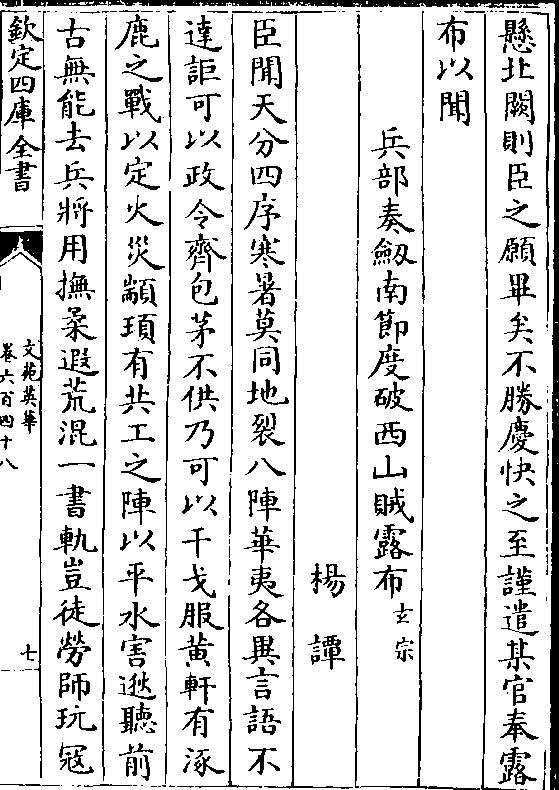 懸北闕則臣之願畢矣不勝慶快之至謹遣某官奉露
布以聞
兵部奏劔南節度破西山賊露布玄宗
楊譚
臣聞天分四序寒暑莫同地裂八陣華夷各異言語不
達詎可以政令齊包茅不供乃可以干戈服黄軒有涿
鹿之戰以定火災顓頊有共工之陣以平水害逖聽前
古無能去兵將用撫柔遐荒混一書軌豈徒勞師玩寇
欽定四庫全書
文苑英華
卷六百四十八
七